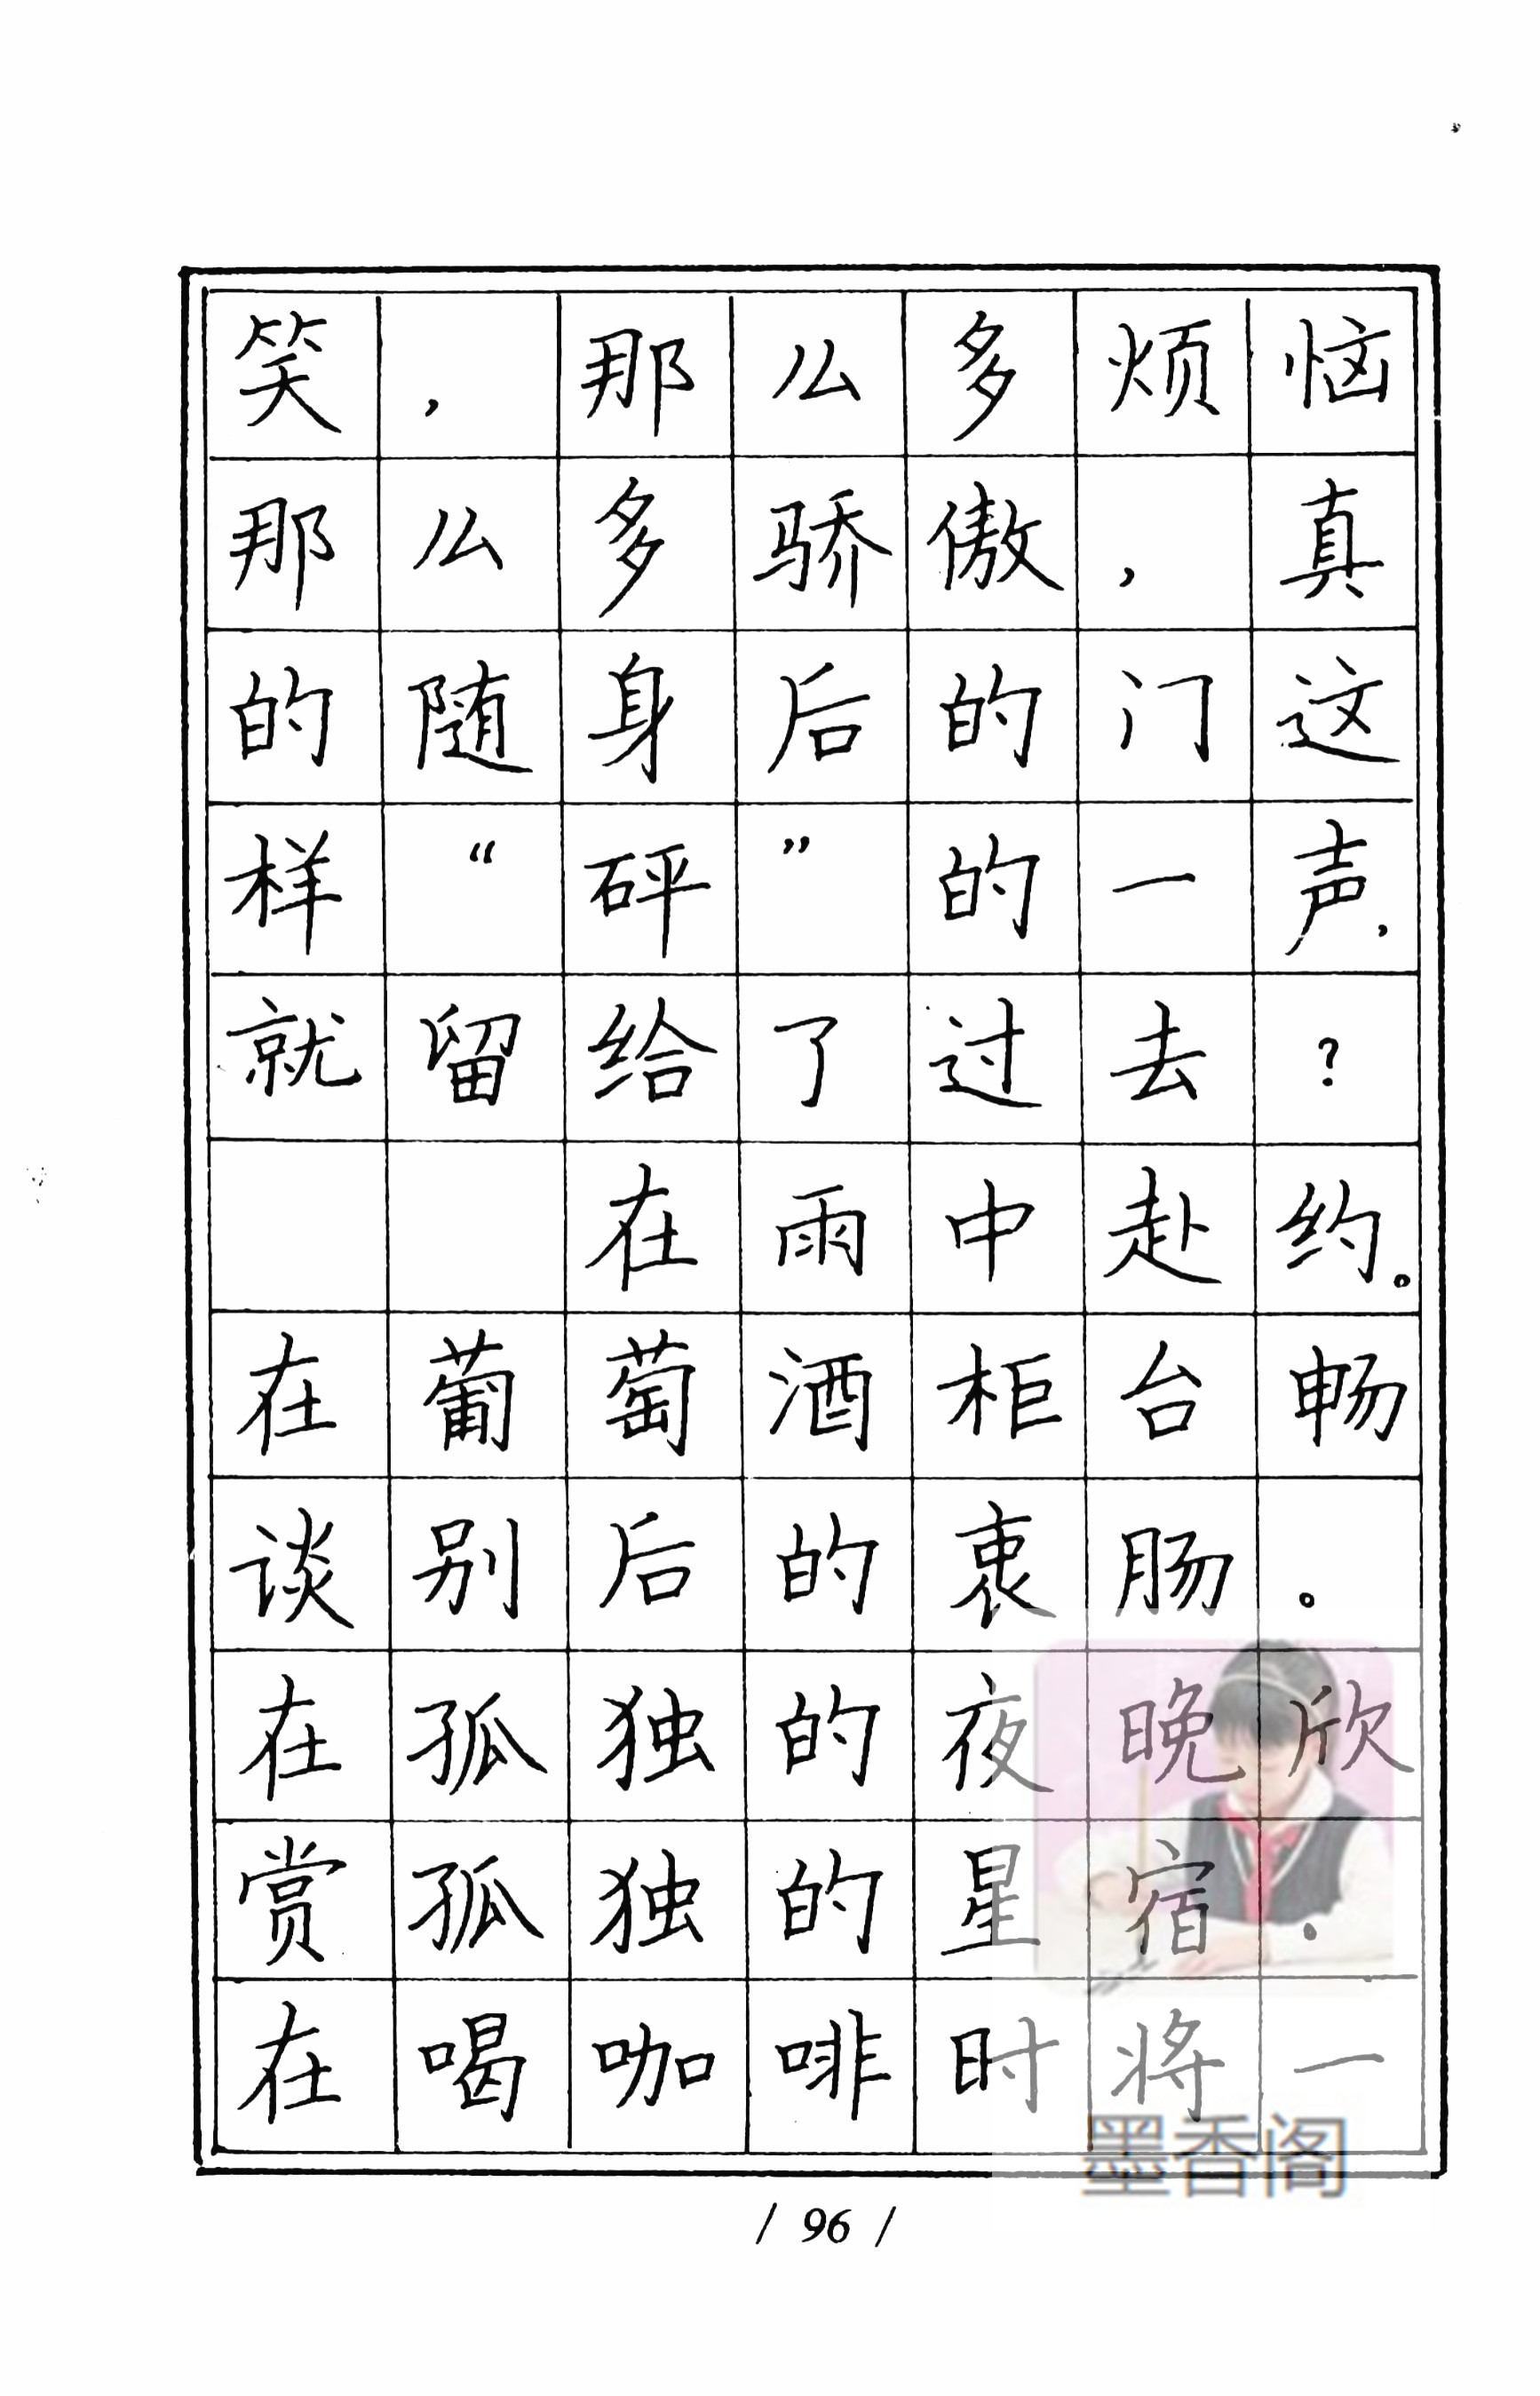 笑，那么多烦恼
那么多骄傲，真
的随身后的门这
样“砰”的一声，
就留给了过去？
在雨中赴约。
在葡萄酒柜台畅
谈别后的衷肠。
在孤独的夜晚欣
赏孤独的星宿。
在喝咖啡时将一
墨香阁
/ 96 /